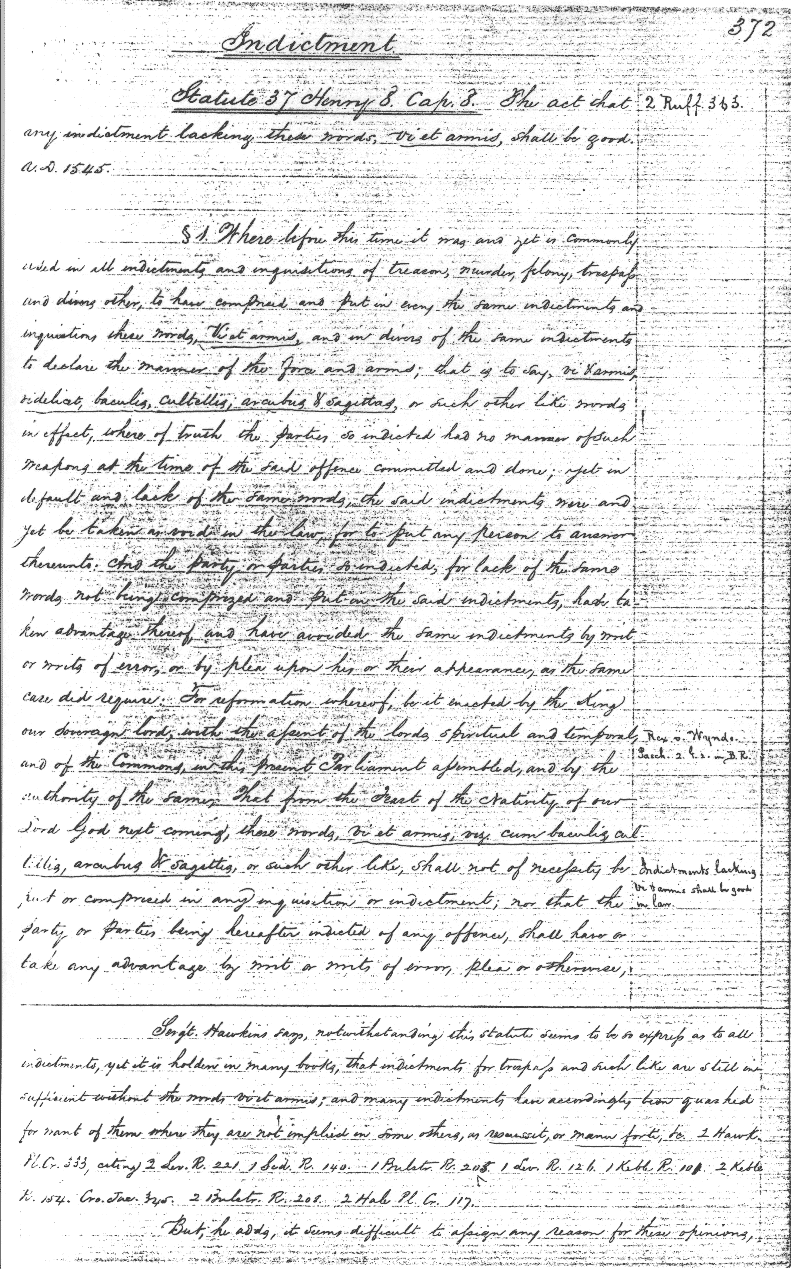 372
Indictment.
Statute 37 Henry 8. Cap. 8. The act that
2 Ruff. 363.
any indictment lacking these words, vi et armis, shall be good.
A.D. 1545.
§ 1. Where before this time it was and yet is commonly
used in all indictments and inquisitions of treason, murder, felony, trespass
and divers other, to have comprised and put in every the same indictments and
inquisitions these words, Vi et armis, and in divers of the same indictments
to declare the manner of the force and arms; that is to say, vi & armis,
videlicet, baculis, cultellis, arcubus & sagittas, or such other like words
in effect, where of truth the parties so indicted had no manner of such
weapons at the time of the said offence committed and done; yet in
default and lack of the same words, the said indictments were and
yet be taken as void in the law, for to put any person to answer
thereunto: And the party or parties so indicted, for lack of the same
words not being comprized and put in the said indictments, have ta-
ken advantage thereof and have avoided the same indictments by writ
or writs of error, or by plea upon his or their appearance, as the same
case did require: For reformation whereof, be it enacted by the King
our sovereign lord, with the assent of the lords spiritual and temporal,
Rex v. Wynde.
and of the Commons, in this present Parliament assembled, and by the
Pasch. 2. in B.R.
authority of the same, That from the Feast of the Nativity of our
Lord God next coming, these words, vi et armis, viz. cum baculis cul-
tellis, arcubus & sagittis, or such other like, shall not of necessity be
Indictments lacking
vi & armis shall be good
in law.
put or comprised in any inquisition or indictment; nor that the
party or parties being hereafter indicted of any offence, shall have or
take any advantage by writ or writs of error, plea or otherwise,
Sergt. Hawkins says, notwithstanding this statute seems to be so express as to all
indictments, yet it is holden in many books, that indictments for trespass and such like are still in-
sufficient without the words vi et armis; and many indictments have accordingly been quashed
for want of them where they are not implied in some others, as rescussit, or manu forti, &c. 2 Hawk.
Pl. Cr. 333, citing 2 Lev. R. 221. 1 Sid. R. 140. 1 Bulstr. R. 205. 1 Lev. R. 126. 1 Kebl. R. 101. 2 Keble
R. 154. Cro. Jac. 345. 2 Bulstr. R. 208. 2 Hale Pl. Cr. 117.
But, he adds, it seems difficult to assign any reason for these opinions,